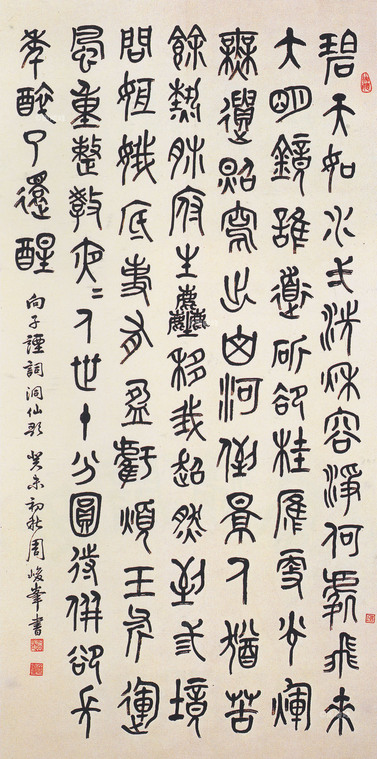 碧天如水弌洗秋容淨何處飛來
大明鏡誰道斫卻桂應更光煇
無遺照寫出山河倒景人猶苦
餘熱肺府生塵移我超然到弎境
問姮娥底事有盈虧煩玉斧運
風重整教夜〻人世十分圓待拚卻長
年醉了還醒
向子諲詞洞仙歌 癸未初秋周峻峯書